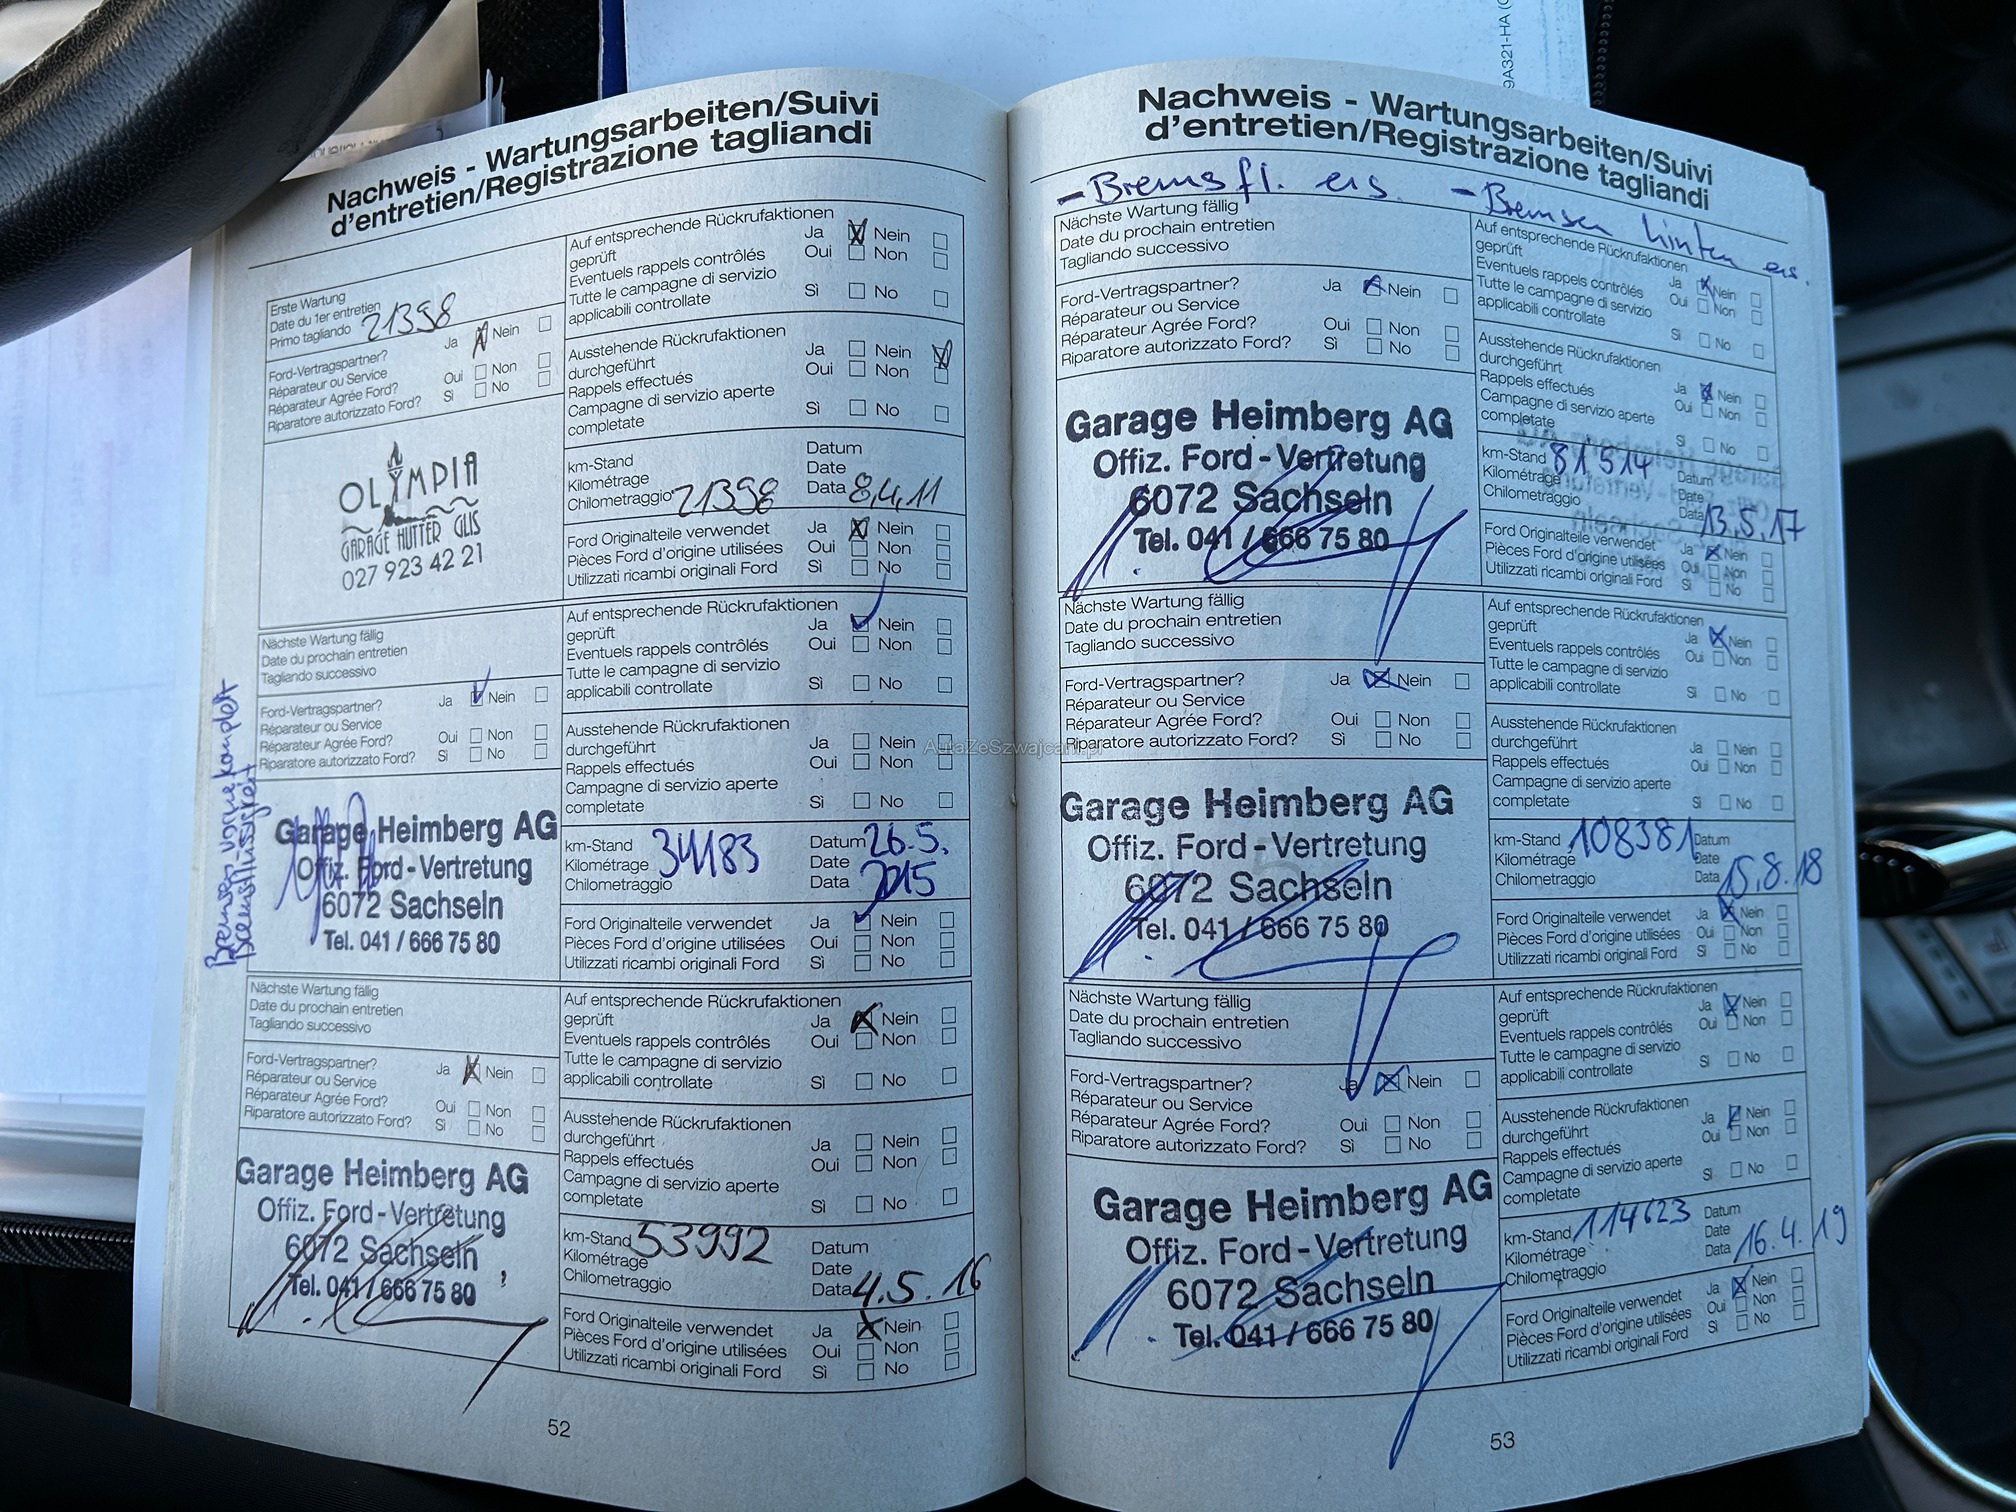 9A321-HA
Nachweis - Wartungsarbeiten/Suivi
d'entretien/Registrazione tagliandi
Erste Wartung
Date du 1er entretien
Primo tagliando 21398
Ford-Vertragspartner? Ja Nein
Réparateur ou Service
Réparateur Agrée Ford? Oui Non
Riparatore autorizzato Ford? Sì No
OLYMPIA
GARAGE HUTTER GLIS
027 923 42 21
Auf entsprechende Rückrufaktionen
geprüft Ja Nein
Eventuels rappels contrôlés Oui Non
Tutte le campagne di servizio
applicabili controllate Sì No
Ausstehende Rückrufaktionen
durchgeführt Ja Nein
Rappels effectués Oui Non
Campagne di servizio aperte
completate Sì No
km-Stand Datum
Kilométrage Date
Chilometraggio 21398 Data 8.4.11
Ford Originalteile verwendet Ja Nein
Pièces Ford d'origine utilisées Oui Non
Utilizzati ricambi originali Ford Sì No
Nächste Wartung fällig
Date du prochain entretien
Tagliando successivo
Ford-Vertragspartner? Ja Nein
Réparateur ou Service
Réparateur Agrée Ford? Oui Non
Riparatore autorizzato Ford? Sì No
Bremsen vorne komplett
Bremsflüssigkeit
Garage Heimberg AG
Offiz. Ford-Vertretung
6072 Sachseln
Tel. 041 / 666 75 80
Auf entsprechende Rückrufaktionen
geprüft Ja Nein
Eventuels rappels contrôlés Oui Non
Tutte le campagne di servizio
applicabili controllate Sì No
Ausstehende Rückrufaktionen
durchgeführt Ja Nein
Rappels effectués Oui Non
Campagne di servizio aperte
completate Sì No
km-Stand 34183 Datum 26.5.
Kilométrage Date 2015
Chilometraggio Data
Ford Originalteile verwendet Ja Nein
Pièces Ford d'origine utilisées Oui Non
Utilizzati ricambi originali Ford Sì No
Nächste Wartung fällig
Date du prochain entretien
Tagliando successivo
Ford-Vertragspartner? Ja Nein
Réparateur ou Service
Réparateur Agrée Ford? Oui Non
Riparatore autorizzato Ford? Sì No
Garage Heimberg AG
Offiz. Ford-Vertretung
6072 Sachseln
Tel. 041 / 666 75 80
Auf entsprechende Rückrufaktionen
geprüft Ja Nein
Eventuels rappels contrôlés Oui Non
Tutte le campagne di servizio
applicabili controllate Sì No
Ausstehende Rückrufaktionen
durchgeführt Ja Nein
Rappels effectués Oui Non
Campagne di servizio aperte
completate Sì No
km-Stand 53992 Datum
Kilométrage Date
Chilometraggio Data 4.5.16
Ford Originalteile verwendet Ja Nein
Pièces Ford d'origine utilisées Oui Non
Utilizzati ricambi originali Ford Sì No
52
Nachweis - Wartungsarbeiten/Suivi
d'entretien/Registrazione tagliandi
- Bremsfl. ers. - Bremsen hinten ers.
Nächste Wartung fällig
Date du prochain entretien
Tagliando successivo
Ford-Vertragspartner? Ja Nein
Réparateur ou Service
Réparateur Agrée Ford? Oui Non
Riparatore autorizzato Ford? Sì No
Garage Heimberg AG
Offiz. Ford-Vertretung
6072 Sachseln
Tel. 041 / 666 75 80
Auf entsprechende Rückrufaktionen
geprüft Ja Nein
Eventuels rappels contrôlés Oui Non
Tutte le campagne di servizio
applicabili controllate Sì No
Ausstehende Rückrufaktionen
durchgeführt Ja Nein
Rappels effectués Oui Non
Campagne di servizio aperte
completate Sì No
km-Stand 81514 Datum
Kilométrage Date
Chilometraggio Data 13.5.17
Ford Originalteile verwendet Ja Nein
Pièces Ford d'origine utilisées Oui Non
Utilizzati ricambi originali Ford Sì No
Nächste Wartung fällig
Date du prochain entretien
Tagliando successivo
Ford-Vertragspartner? Ja Nein
Réparateur ou Service
Réparateur Agrée Ford? Oui Non
Riparatore autorizzato Ford? Sì No
Garage Heimberg AG
Offiz. Ford-Vertretung
6072 Sachseln
Tel. 041 / 666 75 80
Auf entsprechende Rückrufaktionen
geprüft Ja Nein
Eventuels rappels contrôlés Oui Non
Tutte le campagne di servizio
applicabili controllate Sì No
Ausstehende Rückrufaktionen
durchgeführt Ja Nein
Rappels effectués Oui Non
Campagne di servizio aperte
completate Sì No
km-Stand 108381 Datum
Kilométrage Date
Chilometraggio Data 15.8.18
Ford Originalteile verwendet Ja Nein
Pièces Ford d'origine utilisées Oui Non
Utilizzati ricambi originali Ford Sì No
Nächste Wartung fällig
Date du prochain entretien
Tagliando successivo
Ford-Vertragspartner? Ja Nein
Réparateur ou Service
Réparateur Agrée Ford? Oui Non
Riparatore autorizzato Ford? Sì No
Garage Heimberg AG
Offiz. Ford-Vertretung
6072 Sachseln
Tel. 041 / 666 75 80
Auf entsprechende Rückrufaktionen
geprüft Ja Nein
Eventuels rappels contrôlés Oui Non
Tutte le campagne di servizio
applicabili controllate Sì No
Ausstehende Rückrufaktionen
durchgeführt Ja Nein
Rappels effectués Oui Non
Campagne di servizio aperte
completate Sì No
km-Stand 114623 Datum
Kilométrage Date
Chilometraggio Data 16.4.19
Ford Originalteile verwendet Ja Nein
Pièces Ford d'origine utilisées Oui Non
Utilizzati ricambi originali Ford Sì No
53
AutaZeSzwajcarii.pl